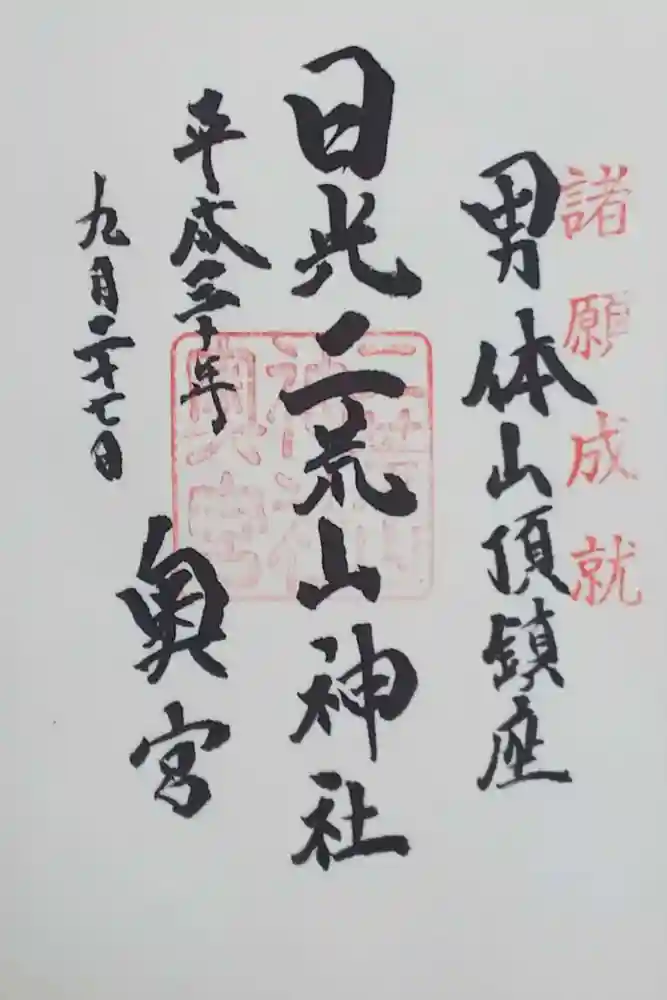 諸願成就
男体山頂鎮座
日光二荒山神社
二荒山
神社
奥宮
奥宮
平成三十年
九月二十七日